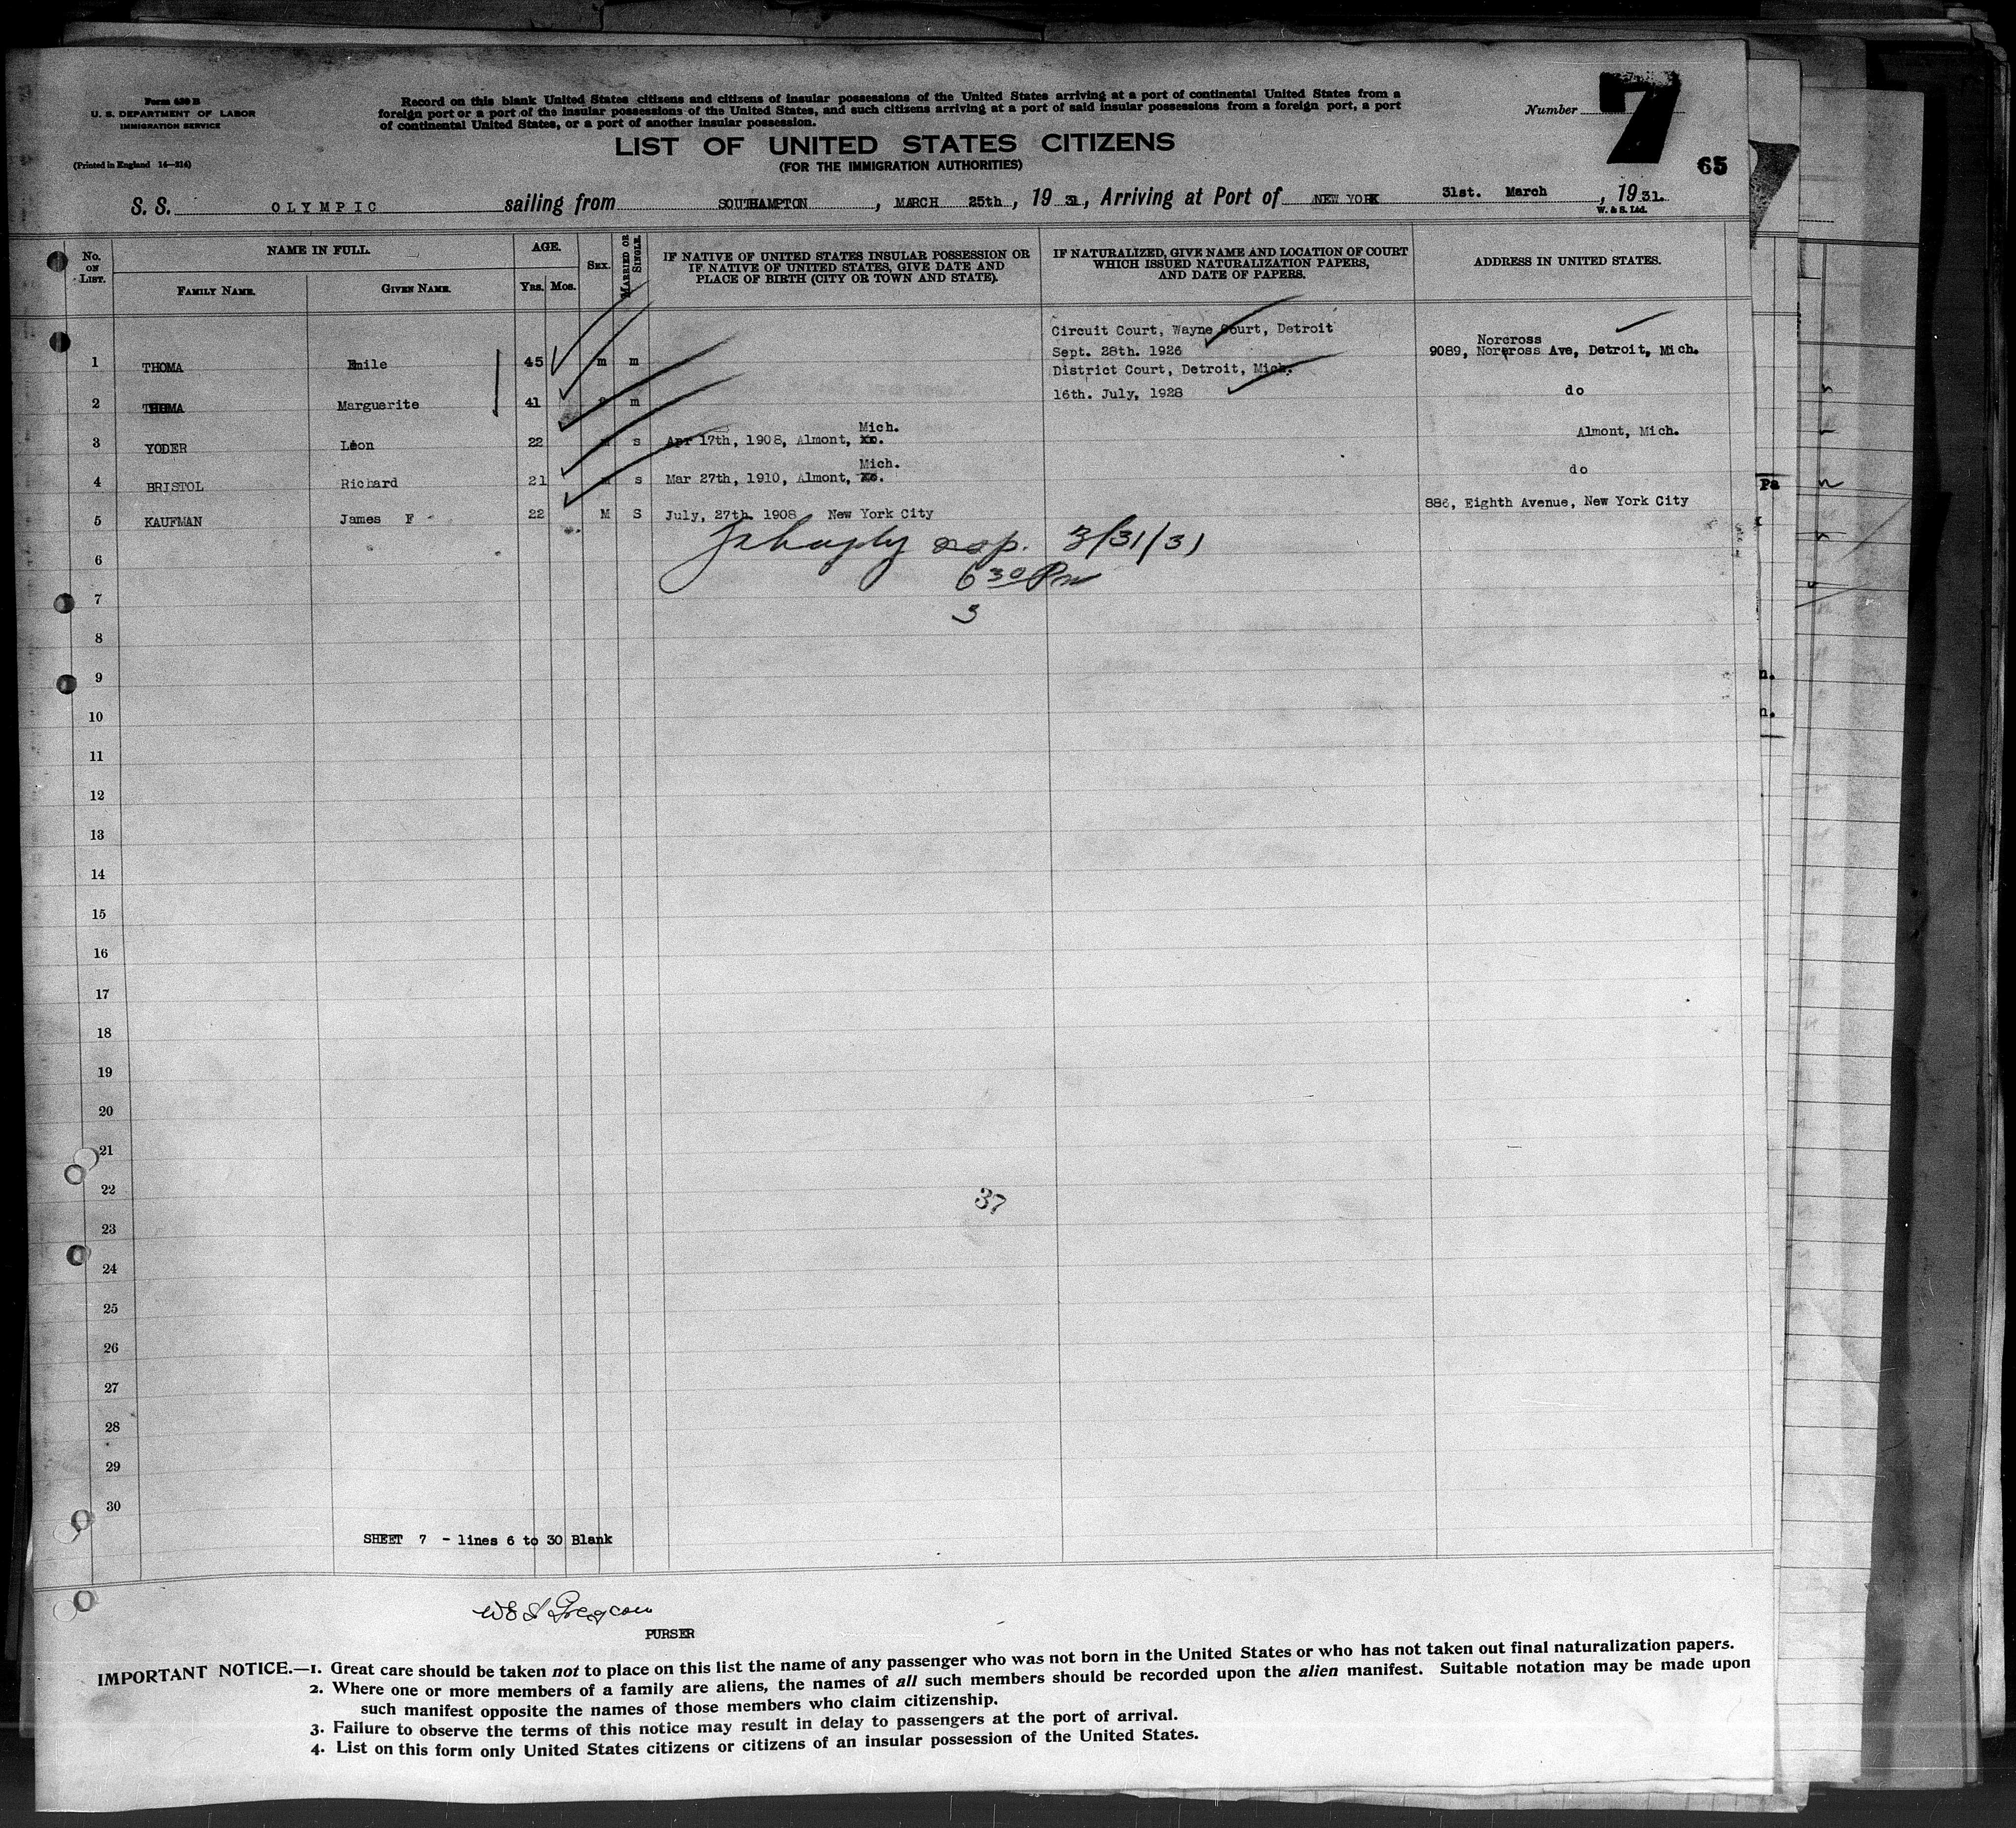 Form 630 B
U. S. DEPARTMENT OF LABOR
IMMIGRATION SERVICE
(Printed in England 14—314)
Record on this blank United States citizens and citizens of insular possessions of the United States arriving at a port of continental United States from a
foreign port or a port of the insular possessions of the United States, and such citizens arriving at a port of said insular possessions from a foreign port, a port
of continental United States, or a port of another insular possession.
Number 7
LIST OF UNITED STATES CITIZENS
(FOR THE IMMIGRATION AUTHORITIES)
65
S. S. OLYMPIC sailing from SOUTHAMPTON, MARCH 25th, 19 31, Arriving at Port of NEW YORK 31st. March, 1931.
W. & S. Ltd.
No. ON LIST. NAME IN FULL. FAMILY NAME. GIVEN NAME. AGE. YRS. MOS. SEX. MARRIED OR SINGLE. IF NATIVE OF UNITED STATES INSULAR POSSESSION OR IF NATIVE OF UNITED STATES, GIVE DATE AND PLACE OF BIRTH (CITY OR TOWN AND STATE). IF NATURALIZED, GIVE NAME AND LOCATION OF COURT WHICH ISSUED NATURALIZATION PAPERS, AND DATE OF PAPERS. ADDRESS IN UNITED STATES.
Circuit Court, Wayne Court, Detroit
Norcross
1 THOMA Emile 45 m m Sept. 28th. 1926 9089, Norcross Ave, Detroit, Mich.
District Court, Detroit, Mich.
2 THOMA Marguerite 41 m 16th. July, 1928 do
Mich.
3 YODER Leon 22 s Apr 17th, 1908, Almont, Almont, Mich.
Mich.
4 BRISTOL Richard 21 s Mar 27th, 1910, Almont, do
5 KAUFMAN James F 22 M S July, 27th, 1908 New York City 886, Eighth Avenue, New York City
3/31/31
6
6 30 Pm
7
3
8
9
10
11
12
13
14
15
16
17
18
19
20
21
22
37
23
24
25
26
27
28
29
30
SHEET 7 - lines 6 to 30 Blank
PURSER
IMPORTANT NOTICE.—1. Great care should be taken not to place on this list the name of any passenger who was not born in the United States or who has not taken out final naturalization papers.
2. Where one or more members of a family are aliens, the names of all such members should be recorded upon the alien manifest. Suitable notation may be made upon
such manifest opposite the names of those members who claim citizenship.
3. Failure to observe the terms of this notice may result in delay to passengers at the port of arrival.
4. List on this form only United States citizens or citizens of an insular possession of the United States.